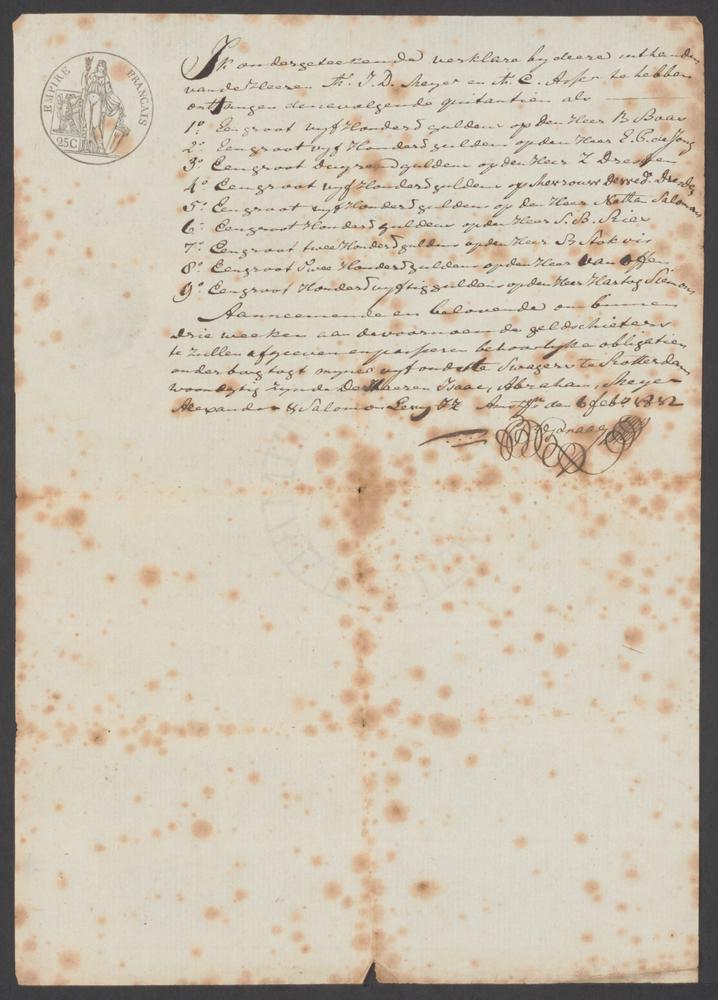 EMPIRE FRANÇAIS
25C
Ik ondergeteekende verklare by deese uithanden
van de Heeren Mr. J. D. Meyer en Mr. C. Asser te hebben
ontfangen de navolgende quitantien als
1º Een groot vyf Honderd guldens op den Heer B. Boas
2º Een groot vyf Honderd guldens op den Heer E. C. de Jong
3º Een groot guldens op den Heer Z Dresden
4º Een groot vyf Honderd guldens op Mevrouw De Wed. Dresden
5º Een groot vyf Honderd guldens op den Heer Nathan Salomons
6º Een groot Honderd guldens op den Heer S. B.
7º Een groot twee Honderd guldens op den Heer B Stokvis
8º Een groot Twee Honderd guldens op den Heer van Offen
9º Een groot Honderd vyftig guldens op den Heer Hartog Siemons
Aanneemende en beloovende om binnen
drie weeken aan de voornoemde geldschieters
te zullen afgeeven en passeren behoorlyke obligatien
onder borgtogt mynes vyf ondste Swagers te Rotterdam
woonagtig zynde De Heeren Isaac, Abraham, Meyer
Alexander & Salomon Levy IZ Amstm den 6 feb 1812